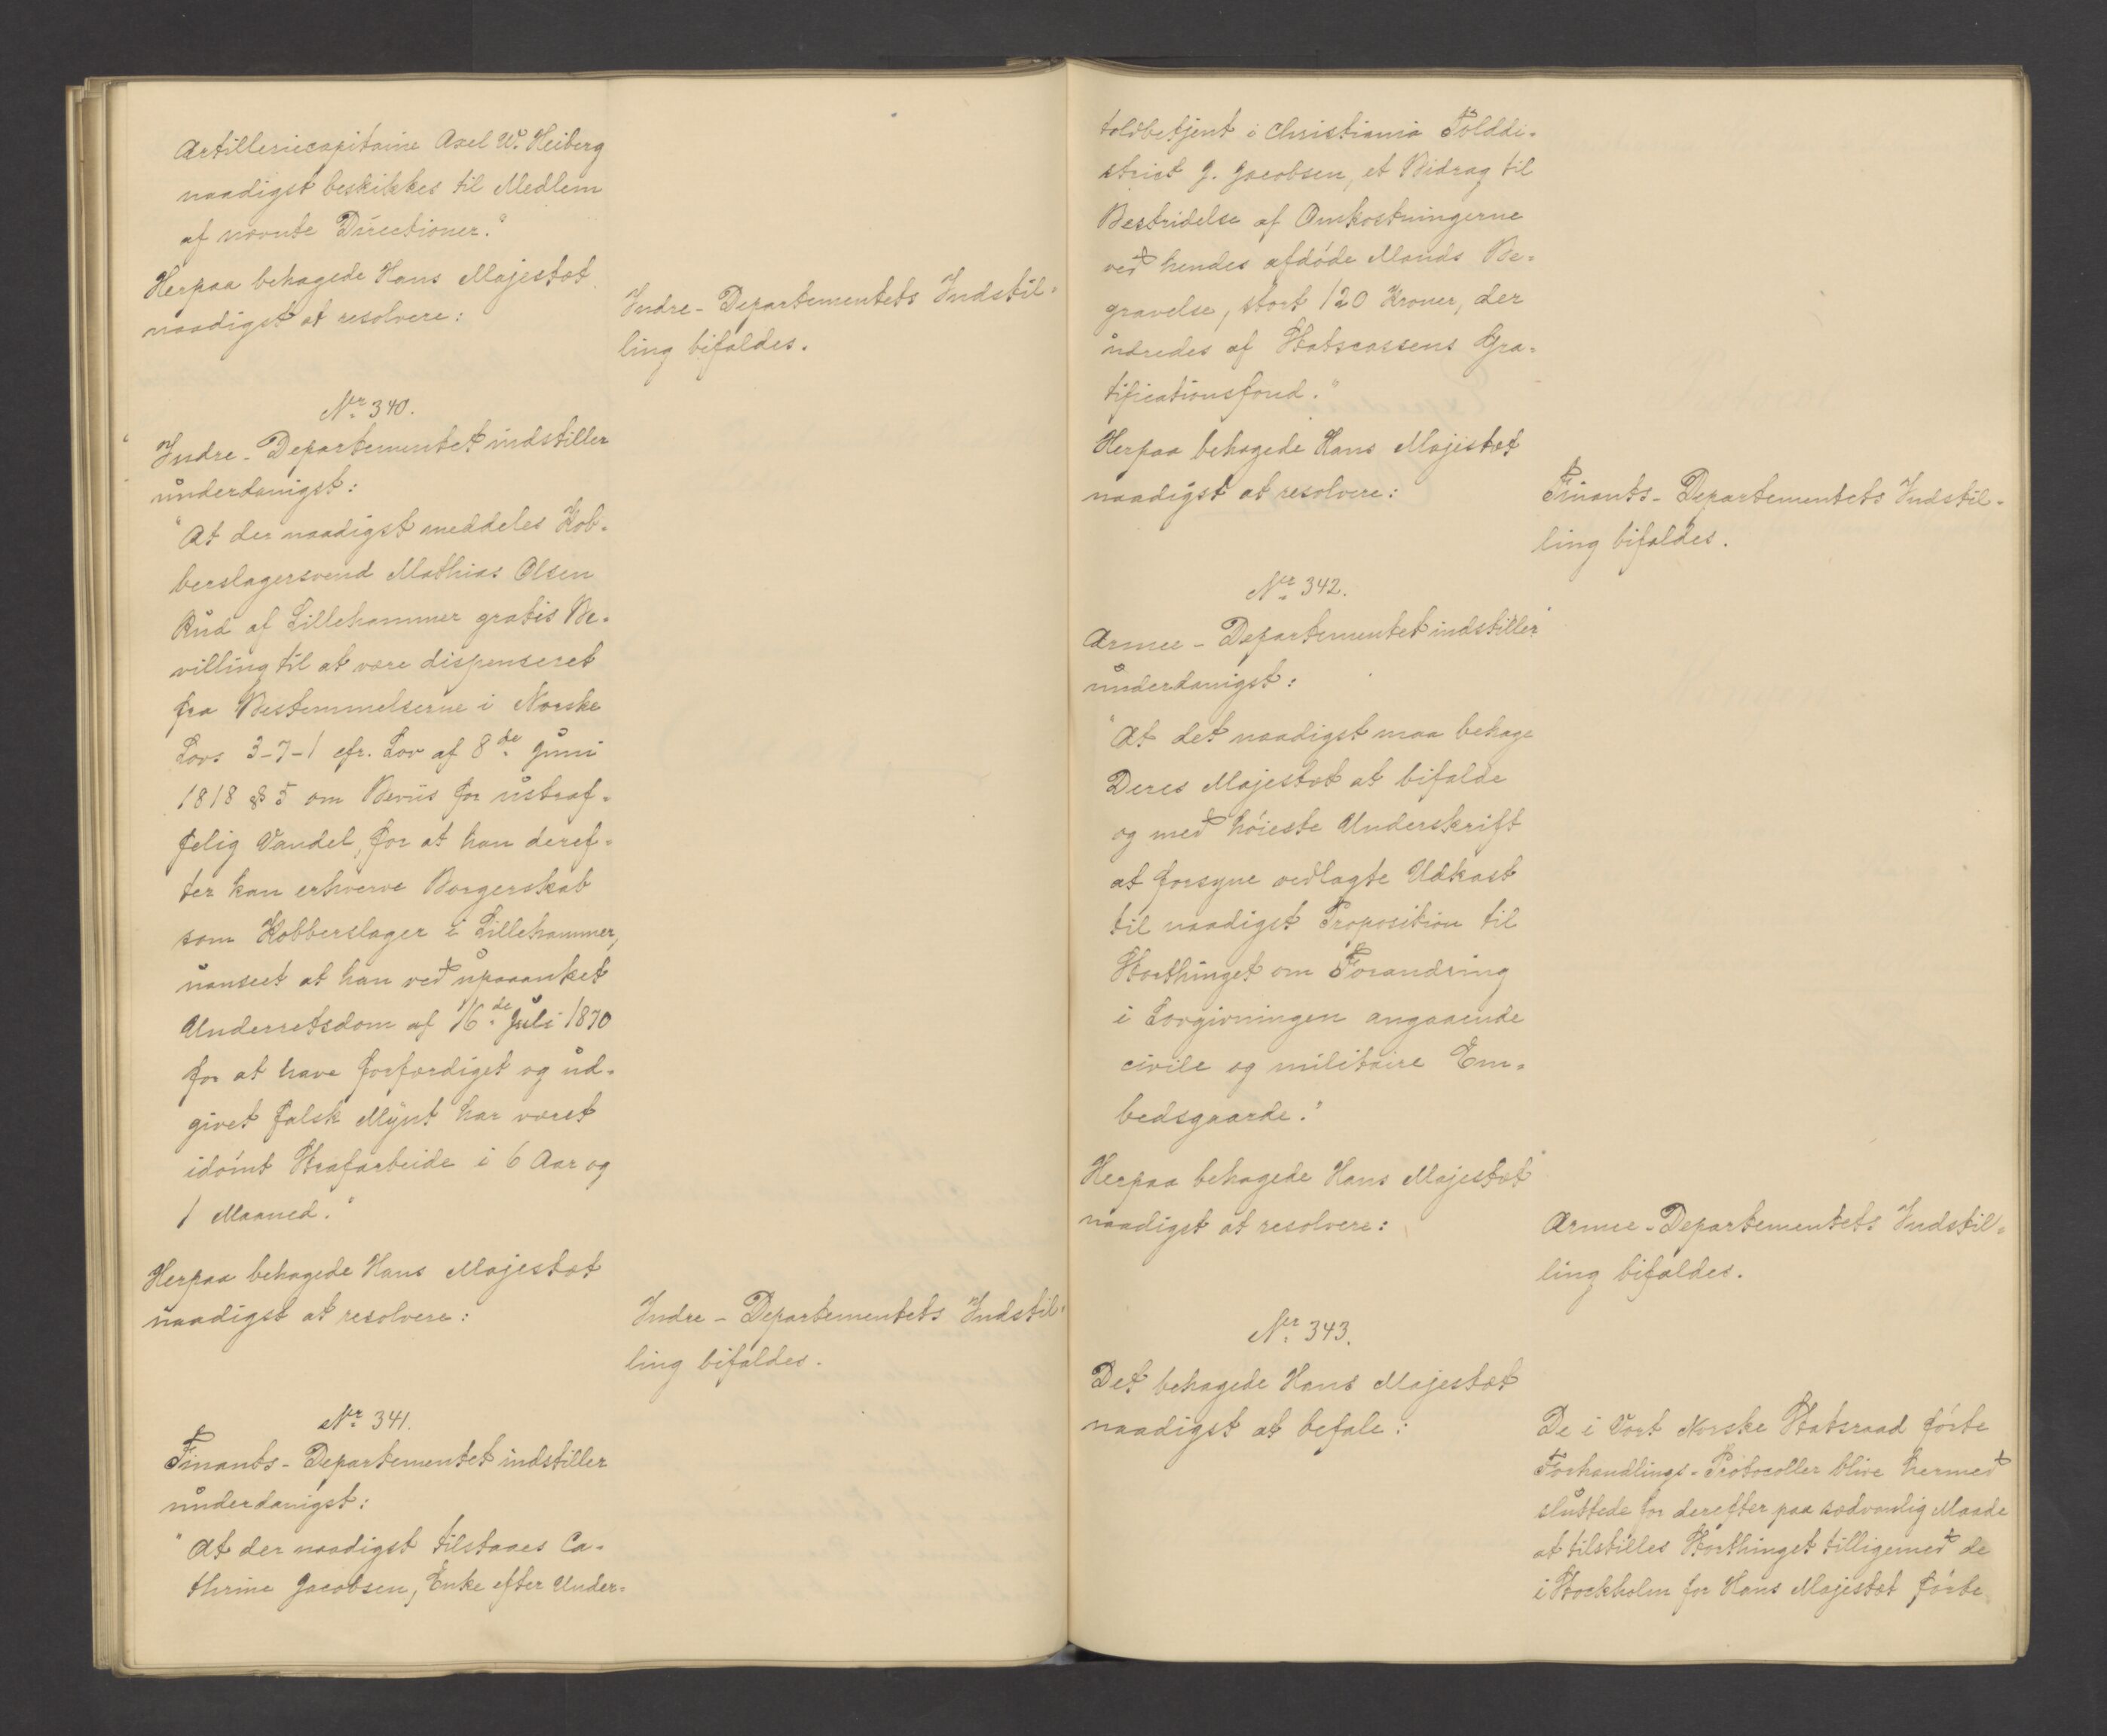 Artilleriecapitaine Axel W. Heiberg
naadigst beskikkes til Medlem
af nævnte Directioner."
Herpaa behagede Hans Majestæt
naadigst at resolvere:
Indre-Departementets Indstil-
ling bifaldes.
Nr. 340.
Indre-Departementet indstiller
underdanigst:
"At der naadigst meddeles Kob-
berslagersvend Mathias Olsen
Rud af Lillehammer gratis Be-
villing til at være dispenseret
fra Bestemmelserne i Norske
Lovs 3-7-1 cfr. Lov af 8de Juni
1818 § 5 om Beviis for ustraf-
felig Vandel, for at han deref-
ter kan erhverve Borgerskab
som Kobberslager i Lillehammer,
uanseet at han ved upaaanket
Underretsdom af 16de Juli 1870
for at have forfærdiget og ud-
givet falsk Mynt har været
idømt Strafarbeide i 6 Aar og
1 Maaned."
Herpaa behagede Hans Majestæt
naadigst at resolvere:
Indre-Departementets Indstil-
ling bifaldes.
Nr. 341.
Finants-Departementet indstiller
underdanigst:
"At der naadigst tilstaaes Ca-
thrine Jacobsen, Enke efter Under-
toldbetjent i Christiania Tolddi-
strict J. Jacobsen, et Bidrag til
Bestridelse af Omkostningerne
ved hendes afdøde Mands Be-
gravelse, stort 120 Kroner, der
udredes af Statscassens Gra-
tificationsfond."
Herpaa behagede Hans Majestæt
naadigst at resolvere:
Finants-Departementets Indstil-
ling bifaldes.
Nr. 342.
Armee-Departementet indstiller
underdanigst:
"At det naadigst maa behage
Deres Majestæt at bifalde
og med høieste Underskrift
at forsyne vedlagte Udkast
til naadigst Proposition til
Storthinget om Forandring
i Lovgivningen angaaende
civile og militaire Em-
bedsgaarde."
Herpaa behagede Hans Majestæt
naadigst at resolvere:
Armee-Departementets Indstil-
ling bifaldes.
Nr. 343.
Det behagede Hans Majestæt
naadigst at befale:
De i Vort Norske Statsraad førte
Forhandlings-Protocoller blive hermed
sluttede for derefter paa sædvanlig Maade
at tilstilles Storthinget tilligemed de
i Stockholm for Hans Majestæt førte